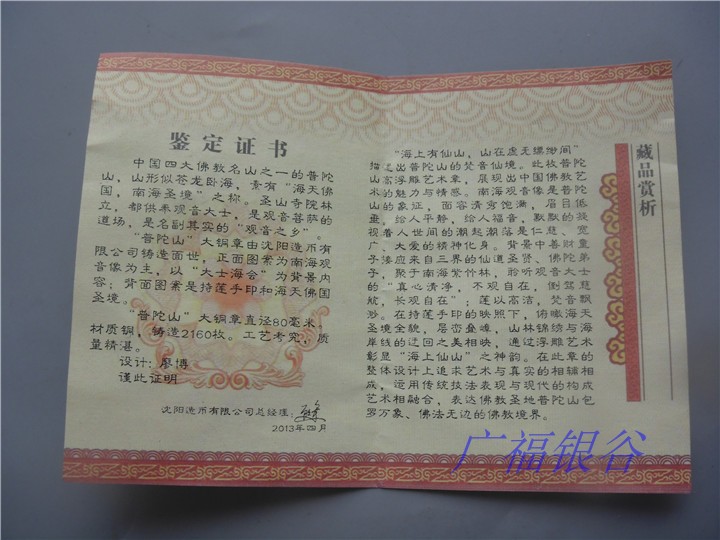 鉴定证书
中国四大佛教名山之一的普陀
山，山形似苍龙卧海，素有“海天佛
国，南海圣境”之称。圣山寺院林
立，都供奉观音大士，是观音菩萨的
道场，是名副其实的“观音之乡”。
“普陀山”大铜章由沈阳造币有
限公司铸造面世，正面图案为南海观
音像为主，以“大士海会”为背景内
容；背面图案是持莲手印和海天佛国
圣境。
“普陀山”大铜章直径80毫米。
材质铜，铸造2160枚。工艺考究，质
量精湛。
设计：廖博
谨此证明
沈阳造币有限公司总经理：
2013年四月
藏品赏析
“海上有仙山，山在虚无缥缈间”
描述出普陀山的梵音仙境。此枚普陀
山高浮雕艺术章，展现出中国佛教艺
术的魅力与情感。南海观音像是普陀
山的象征，面容清秀饱满，眉目低
垂，给人平静，给人福音，默默的凝
视着人世间的潮起潮落是仁慈、宽
广、大爱的精神化身。背景中善财童
子接应来自三界的仙道圣贤、佛陀弟
子，聚于南海紫竹林，聆听观音大士
的“真心清净，不观自在，倒驾慈
航，长观自在”；莲以高洁，梵音飘
渺。在持莲手印的映照下，俯瞰海天
圣境全貌，层峦叠嶂，山林锦绣与海
岸线的迂回之美相映，通过浮雕艺术
彰显“海上仙山”之神韵。在此章的
整体设计上追求艺术与真实的相辅相
成，运用传统技法表现与现代的构成
艺术相融合，表达佛教圣地普陀山包
罗万象、佛法无边的佛教境界。
广福银谷